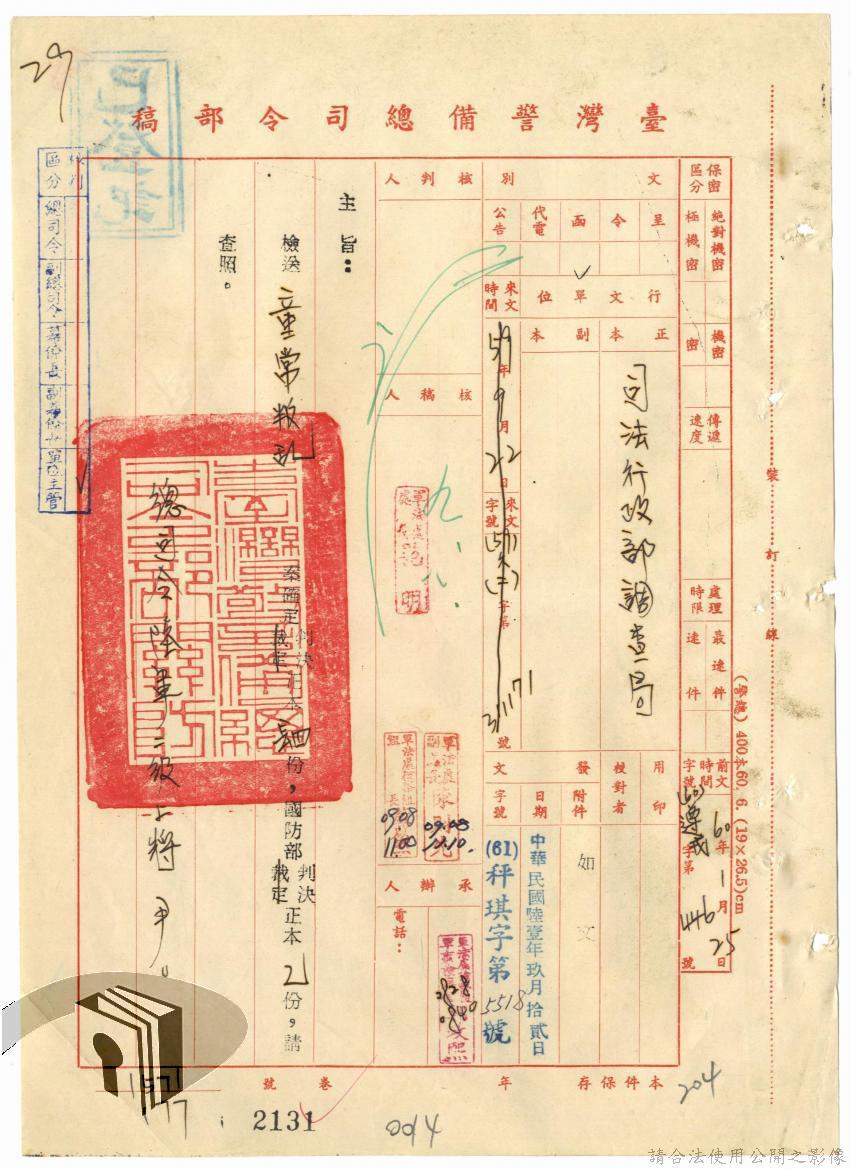 29
已登記
臺灣警備總司令部稿
保密區分
絕對機密
極機密
機密
密
傳遞速度
處理時限
最速件
速件
前文時間
60年1月25日
字號
字第446號
文別
呈
令
函
代電
公告
行文單位
正本
副本
司法行政部調查局
來文時間
59年9月22日
來文字號
字第311171號
用印
校對者
發文
附件
如文
日期
中華民國陸壹年玖月拾貳日
字號
(61)秤琪字第5518號
核判人
核稿人
九、八、
軍法處
09.08
11.10.
09.08
11.00
承辦人
電話：
主旨：
檢送童常叛亂案確定判決裁定正本 份，國防部判決裁定正本2份，請
查照。
總司令陸軍二級上將尹
核判區分
總司令
副總司令
參謀長
副參謀長
單位主管
裝訂線
(警總) 400本60. 6. (19×26.5)cm
本件保存 年
卷號
204
1571
2131
004
請合法使用公開之影像